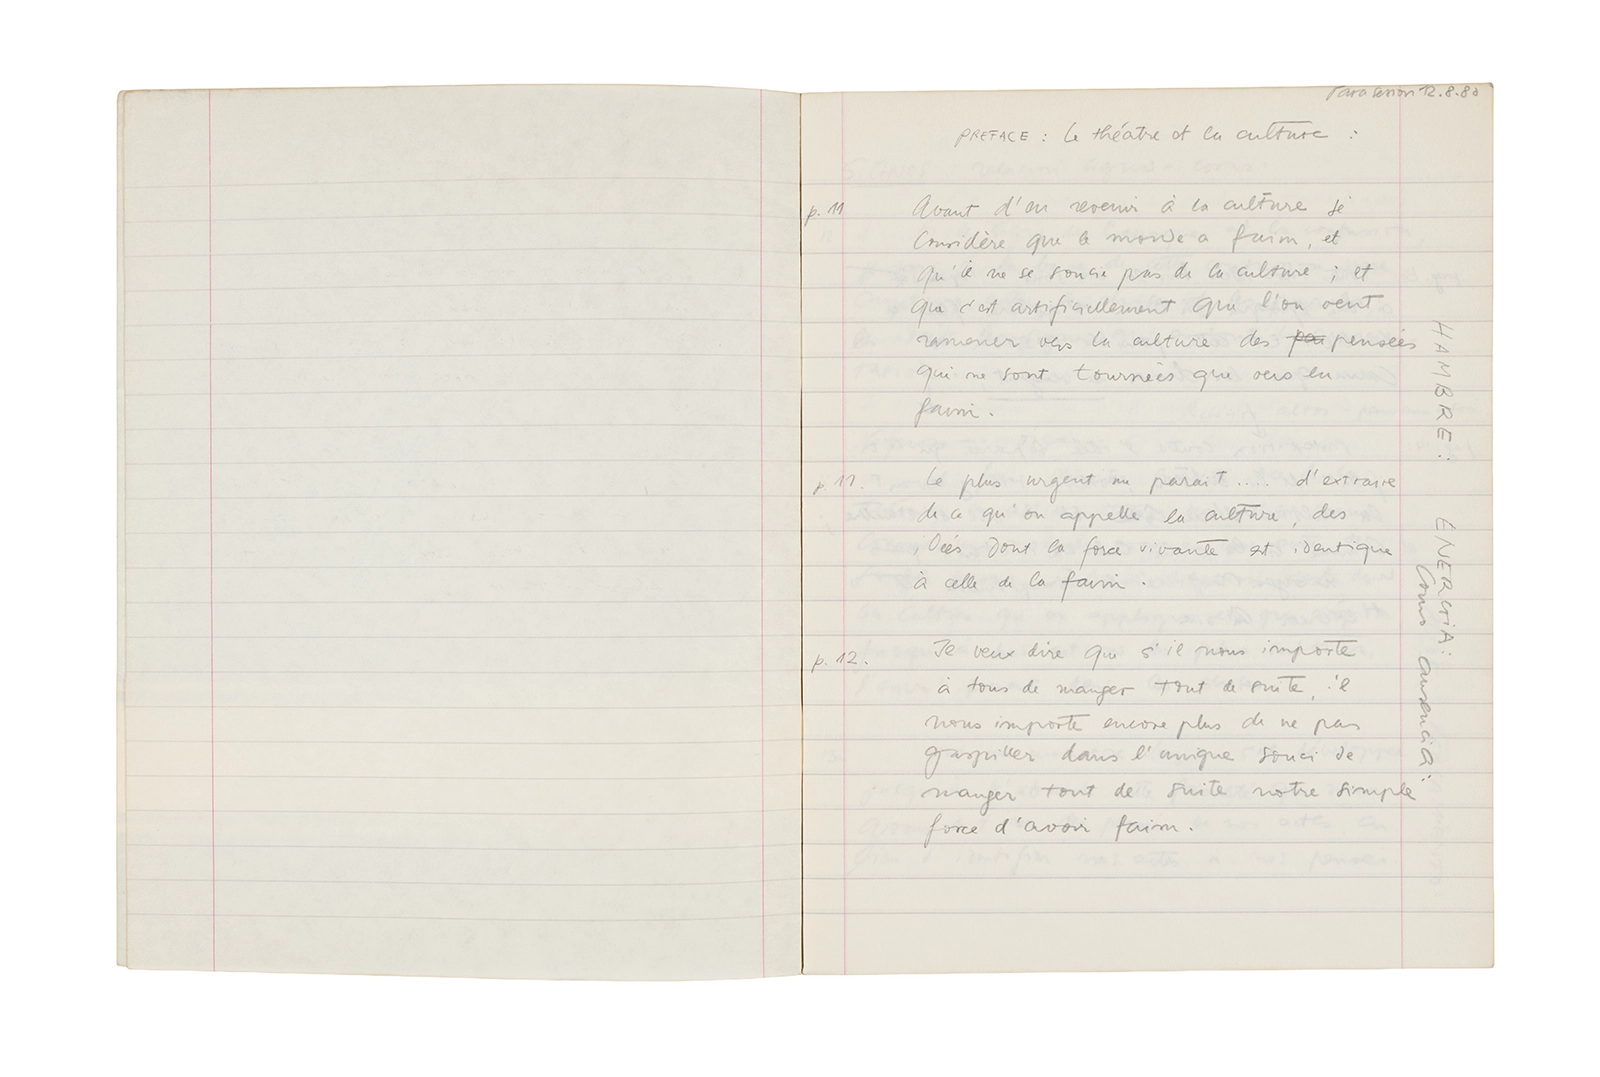 Para sesion 12.8.80
PREFACE : Le théatre et la culture :
p. 11 Avant d'en revenir à la culture je
Considère que le monde a faim, et
qu'il ne se soucie pas de la culture ; et
que c'est artificiellement que l'on veut
ramener vers la culture des pa pensées
qui ne sont tournées que vers la
faim.
p. 11. Le plus urgent me parait .... d'extraire
de ce qu'on appelle la culture, des
idées dont la force vivante est identique
à celle de la faim.
p. 12. Je veux dire que s'il nous importe
à tous de manger tout de suite, il
nous importe encore plus de ne pas
gaspiller dans l'unique souci de
manger tout de suite notre simple
force d'avoir faim.
HAMBRE: ENERGIA:
Como ausencia: